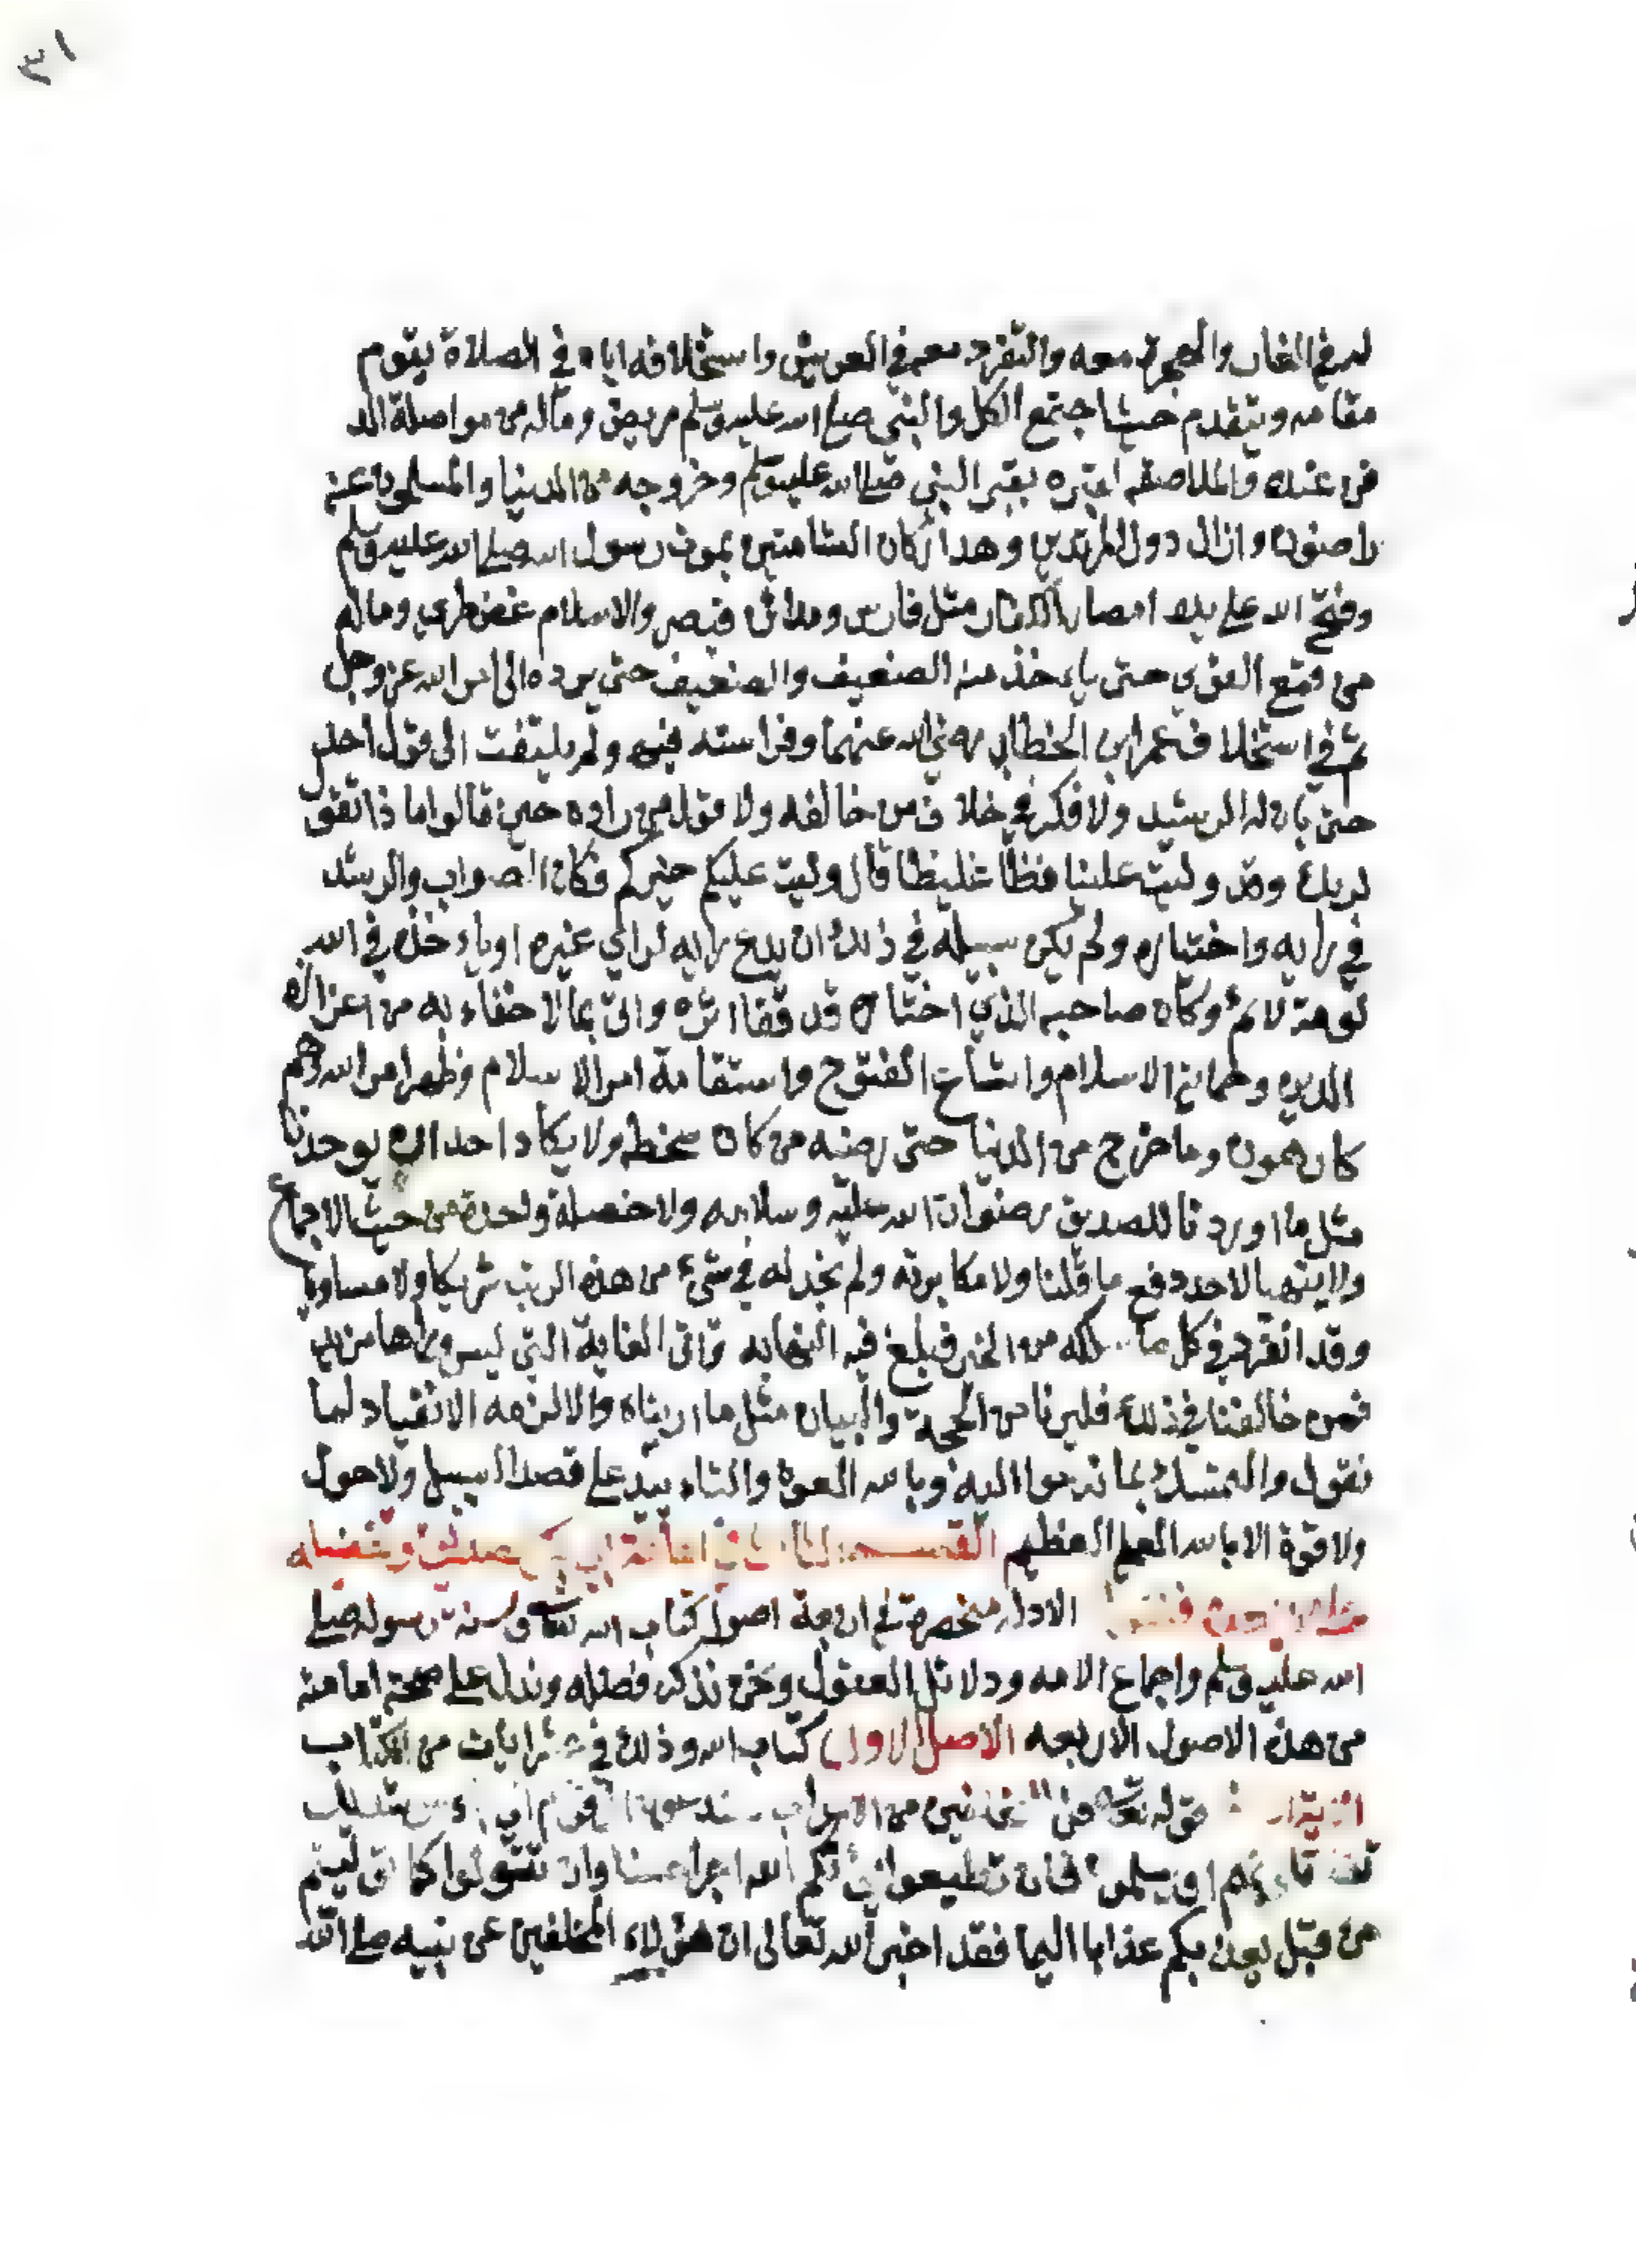 ٣١
له في الغار والهجرة معه والتفرد معه في العريش واستخلافه اياه في الصلاة يقوم
مقامه ويتقدم حيث اجتمع الكل والنبي صلى الله عليه وسلم مريض وماله من مواصلة الد
فن عنده والملاصقه لقبره بقبر النبي صلى الله عليه وسلم وخروجه من الدنيا والمسلمون عنه
راضون وازال دول المرتدين وهدا اركان الشامتين بموت رسول الله صلى الله عليه وسلم
وفتح الله على يده امصار الكفار مثل فارس ومدائن قيصر والاسلام غض طري وماله
من قمع القوي حتى ياءخذ منه الضعيف والضعيف حتى يرده الى امر الله عز وجل
ثم في استخلاف عمر ابن الخطاب رضي الله عنهما وفراسته فيه ولم يلتفت الى قول احد
حتى بان له الرشيد ولا فكر في خلاف من خالفه ولا قول من راده حين قالوا ما ذا تقول
لربك وقد وليت علينا فظا غليظا قال وليت عليكم خيركم فكان الصواب والرشد
في رايه واختياره ولم يكن سبيله في ذلك ان يدع رايه لراي غيره او ياءخذه في الله
لومة لائم وكان صاحبه الذي اختاره قد قفا اثره واتى بما لا خفاء به من اعزازه
الدين وحماية الاسلام واتساع الفتوح واستقامة امر الاسلام وظهر امر الله وهم
كارهون وما خرج من الدنيا حتى رضيه من كان سخطه ولا يكاد احد ان يوجدنا
مثل ما اوردنا للصديق رضوان الله عليه وسلامه ولا خصلة واحدة من حيث الاجماع
ولا ينتهيا لاحد دفع ما قلنا ولا مكابرته ولم نجد له في شيء من هذه الرتب شريكا ولا مساويا
وقد انفرد في كل ما لكه من الخير فبلغ فيه النهايه واتى الغاية التي ليس وراها مزيد
فمن خالفنا في ذلك فليرنا من الحجة والبيان مثل ما اريناه والا لزمه الانقياد لما
نقول والتمسك بما ندعوا اليه وبالله العون والتاءييد على قصد السبيل ولا حول
ولا قوة الا بالله العلي العظيم القسم الثالث في امامة ابي بكر صديق وتفضيله
فنقول الادله منحصرة في اربعة اصول كتاب الله تعالى وسنة رسوله صلى
الله عليه وسلم واجماع الامه ودلائل العقول ونحن نذكر فضله وندله على صحة امامته
من هذه الاصول الاربعه الاصل الاول كتاب الله وذلك في عشر ايات من الكتاب
قوله تعالى قل للمخلفين من الاعراب ستدعون الى قوم اولي باءس شديد
تقاتلونهم او يسلمون فان تطيعوا يؤتكم الله اجرا حسنا وان تتولوا كما توليتم
من قبل يعذبكم عذابا اليما فقد اخبر الله تعالى ان هؤلاء المخلفين عن نبيه صلى الله